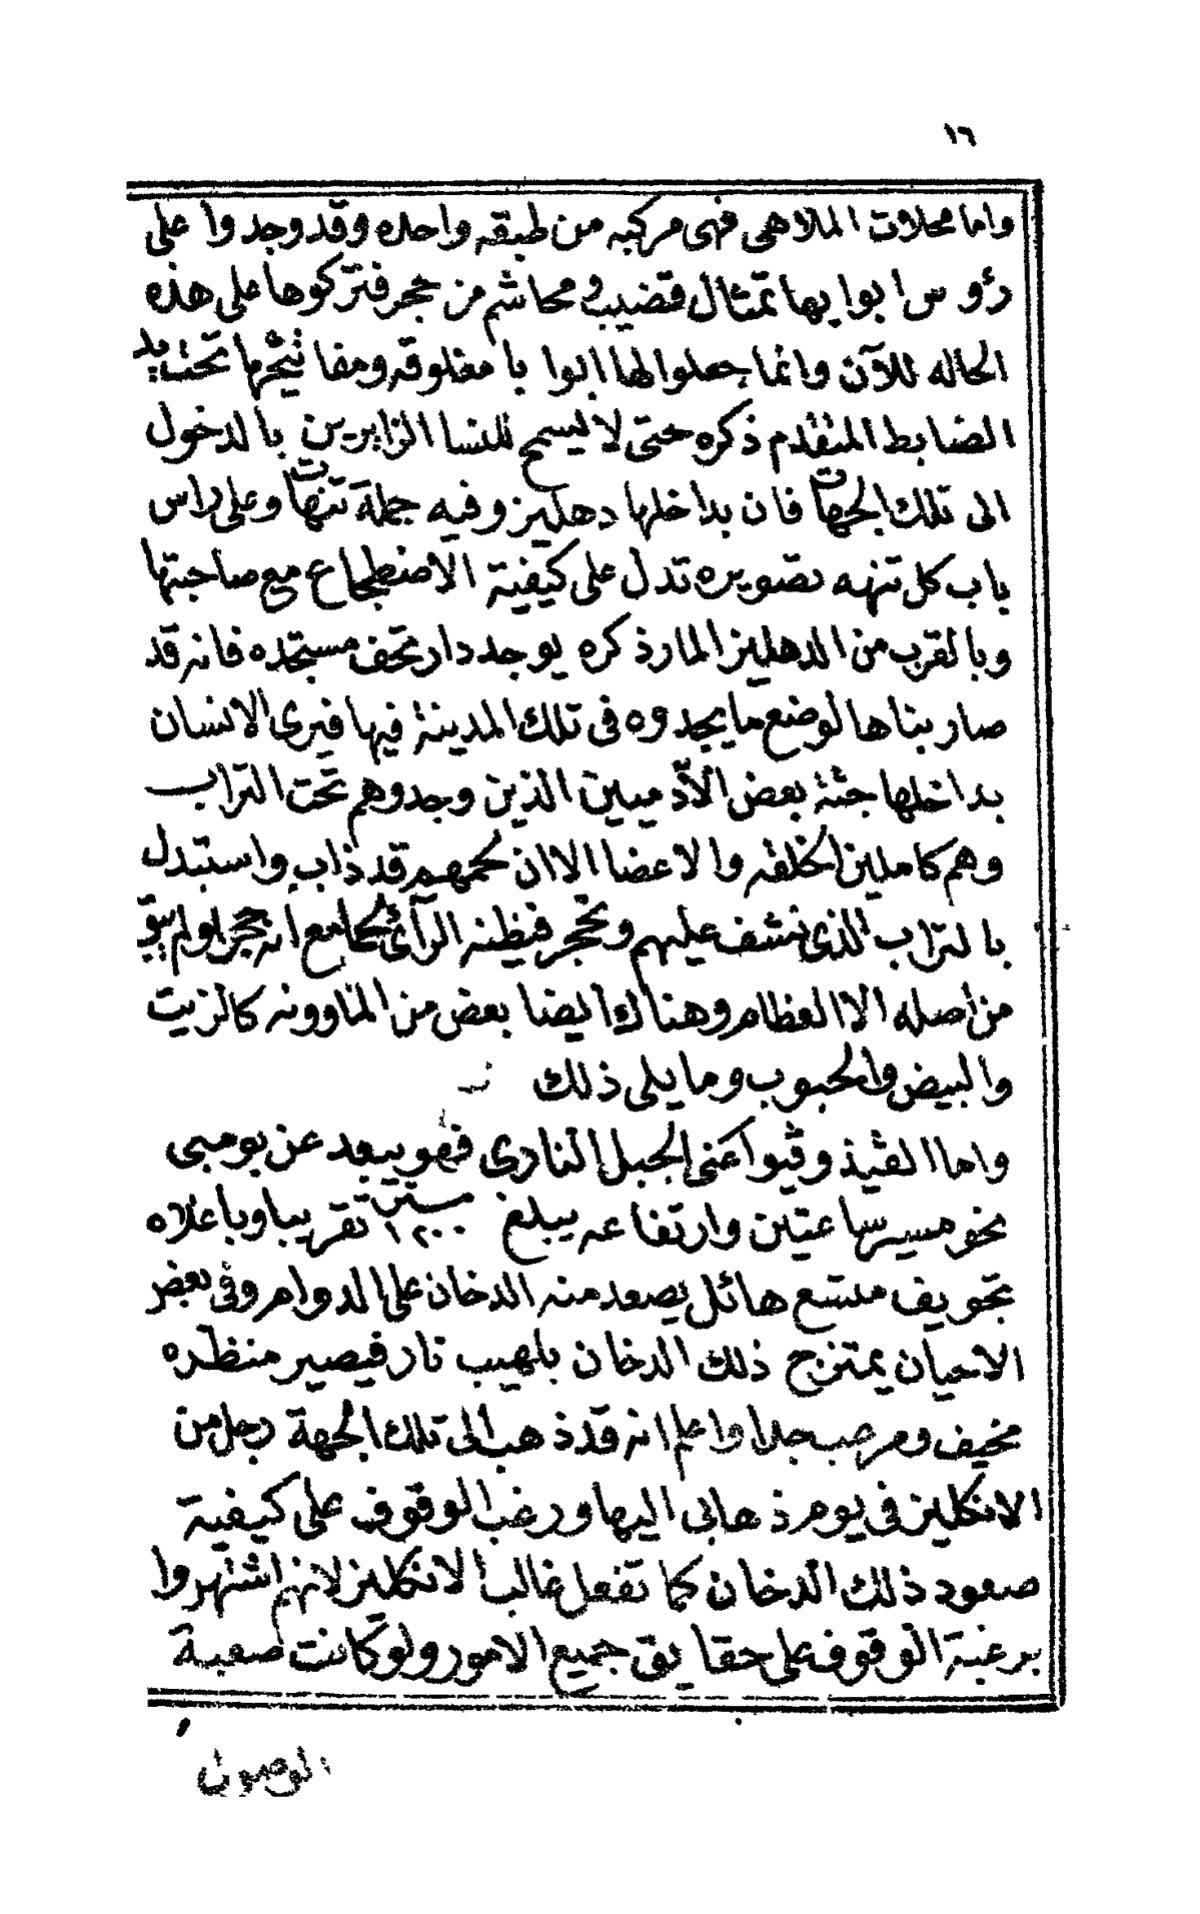 ١٦
واما محلات الملاهى فهى مركبه من طبقه واحده وقد وجدوا على
رؤوس ابوابها تمثال قضيب ومحاشم من حجر فتركوها على هذه
الحاله للآن وانما جعلوا لها ابوابا مغلوقه ومفاتيحها تحت يد
الضابط المتقدم ذكره حتى لا يسمح للنسا الزايرين بالدخول
الى تلك الجهات فان بداخلها دهليز وفيه جملة تنهات وعلى راس
باب كل تنهه تصويره تدل على كيفية الاضطجاع مع صاحبتها
وبالقرب من الدهليز المار ذكره يوجد دار تحف مستجده فانه قد
صار بناها لوضع ما يجدوه فى تلك المدينة فيها فيرى الانسان
بداخلها جثة بعض الأدميين الذين وجدوهم تحت التراب
وهم كاملين الخلقه والاعضا الا ان لحمهم قد ذاب واستبدل
بالتراب الذى نشف عليهم وتحجر فيظنه الرآئى لحما مع انه حجرا ولم يبق
من أصله الا العظام وهناك أيضا بعض من الماوونه كالزيت
والبيض والحبوب وما يلى ذلك
واما الفيذوڤيو اعنى الجبل النارى فهو يبعد عن بومبى
نحو مسير ساعتين وارتفاعه يبلغ ١٢٠٠ مستر تقريبا وباعلاه
تجويف متسع هائل يصعد منه الدخان على الدوام وفى بعض
الاحيان يمتزج ذلك الدخان بلهيب نار فيصير منظره
مخيف ومرعب جدا واعلم انه قد ذهب الى تلك الجهة رجل من
الانكليز فى يوم ذهابى اليها ورغب الوقوف على كيفية
صعود ذلك الدخان كما تفعل غالب الانكليز لانهم اشتهروا
برغبة الوقوف على حقايق جميع الامور ولو كانت صعبة
الوصول